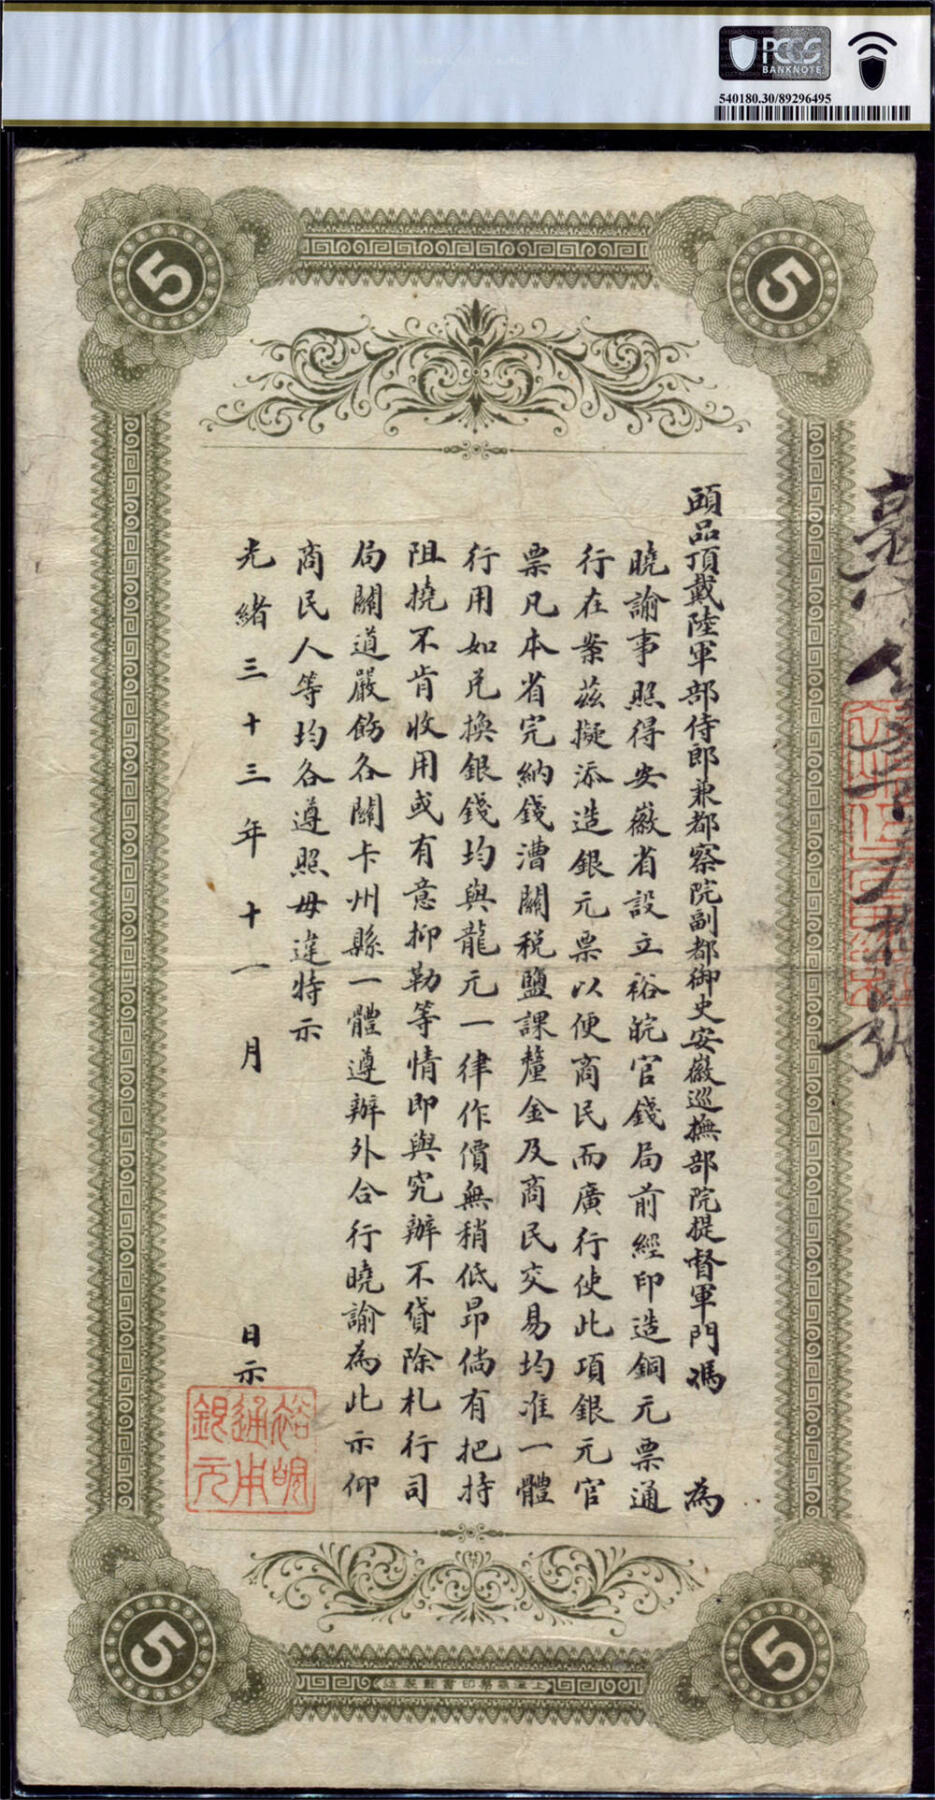 PCGS
BANKNOTE
540180.30/89296495
5
5
頭品頂戴陸軍部侍郎兼都察院副都御史安徽巡撫部院提督軍門馮 為
曉諭事照得安徽省設立裕皖官錢局前經印造銅元票通
行在案茲擬添造銀元票以便商民而廣行使此項銀元官
票凡本省完納錢漕關稅鹽課釐金及商民交易均准一體
行用如兌換銀錢均與龍元一律作價無稍低昂倘有把持
阻撓不肯收用或有意抑勒等情即與究辦不貸除札行司
局關道嚴飭各關卡州縣一體遵辦外合行曉諭為此示仰
商民人等均各遵照毋違特示
光緒三十三年十一月 日示
通用
銀元
5
5